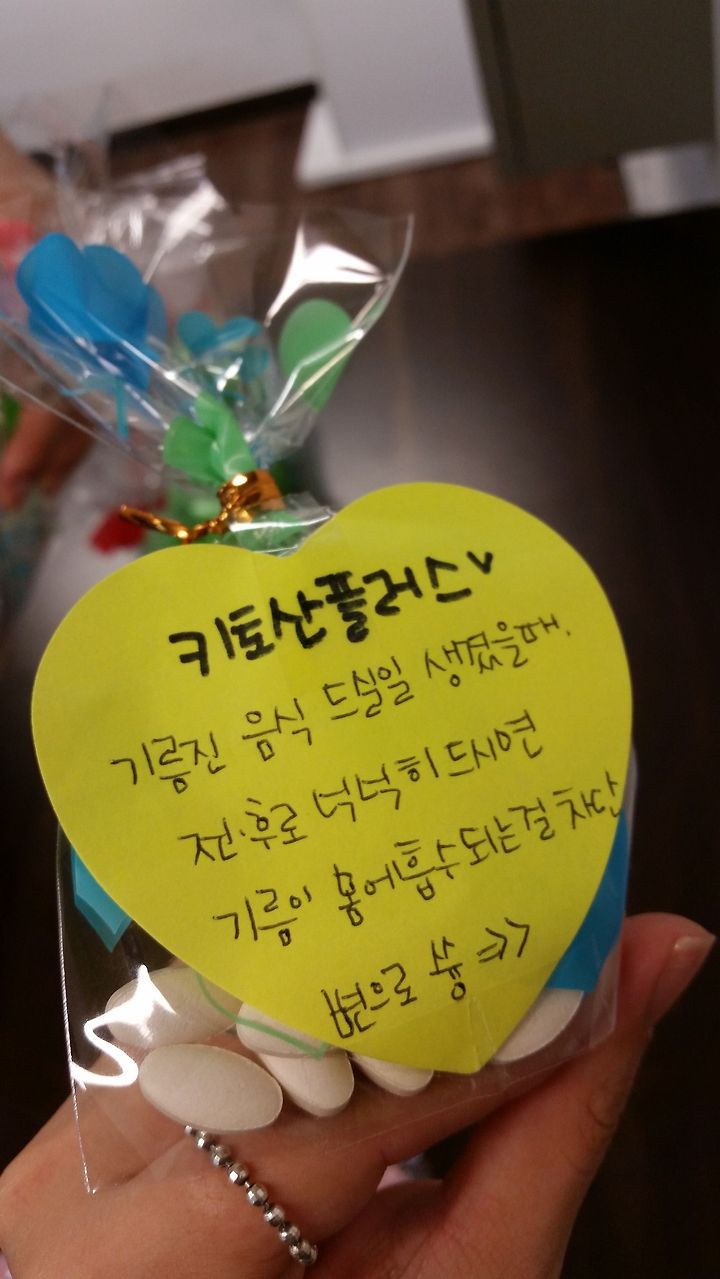 키토산플러스
기름진 음식 드실일 생겼을때.
전·후로 넉넉히 드시면
기름이 몸에흡수되는걸 차단
변으로 슝 =>>